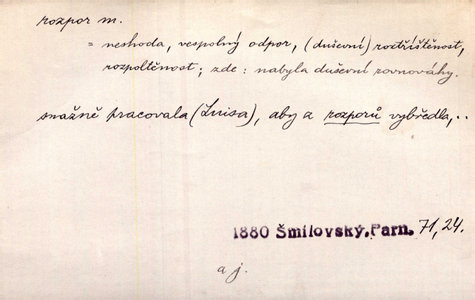 rozpor m.
= neshoda, vespolný odpor, (duševní) roztříštěnost,
rozpoltěnost; zde: nabyla duševní rovnováhy.
snažně pracovala (Luisa), aby z rozporů vybředla,..
1880 Šmilovský, Parn. 71, 24.
a j.